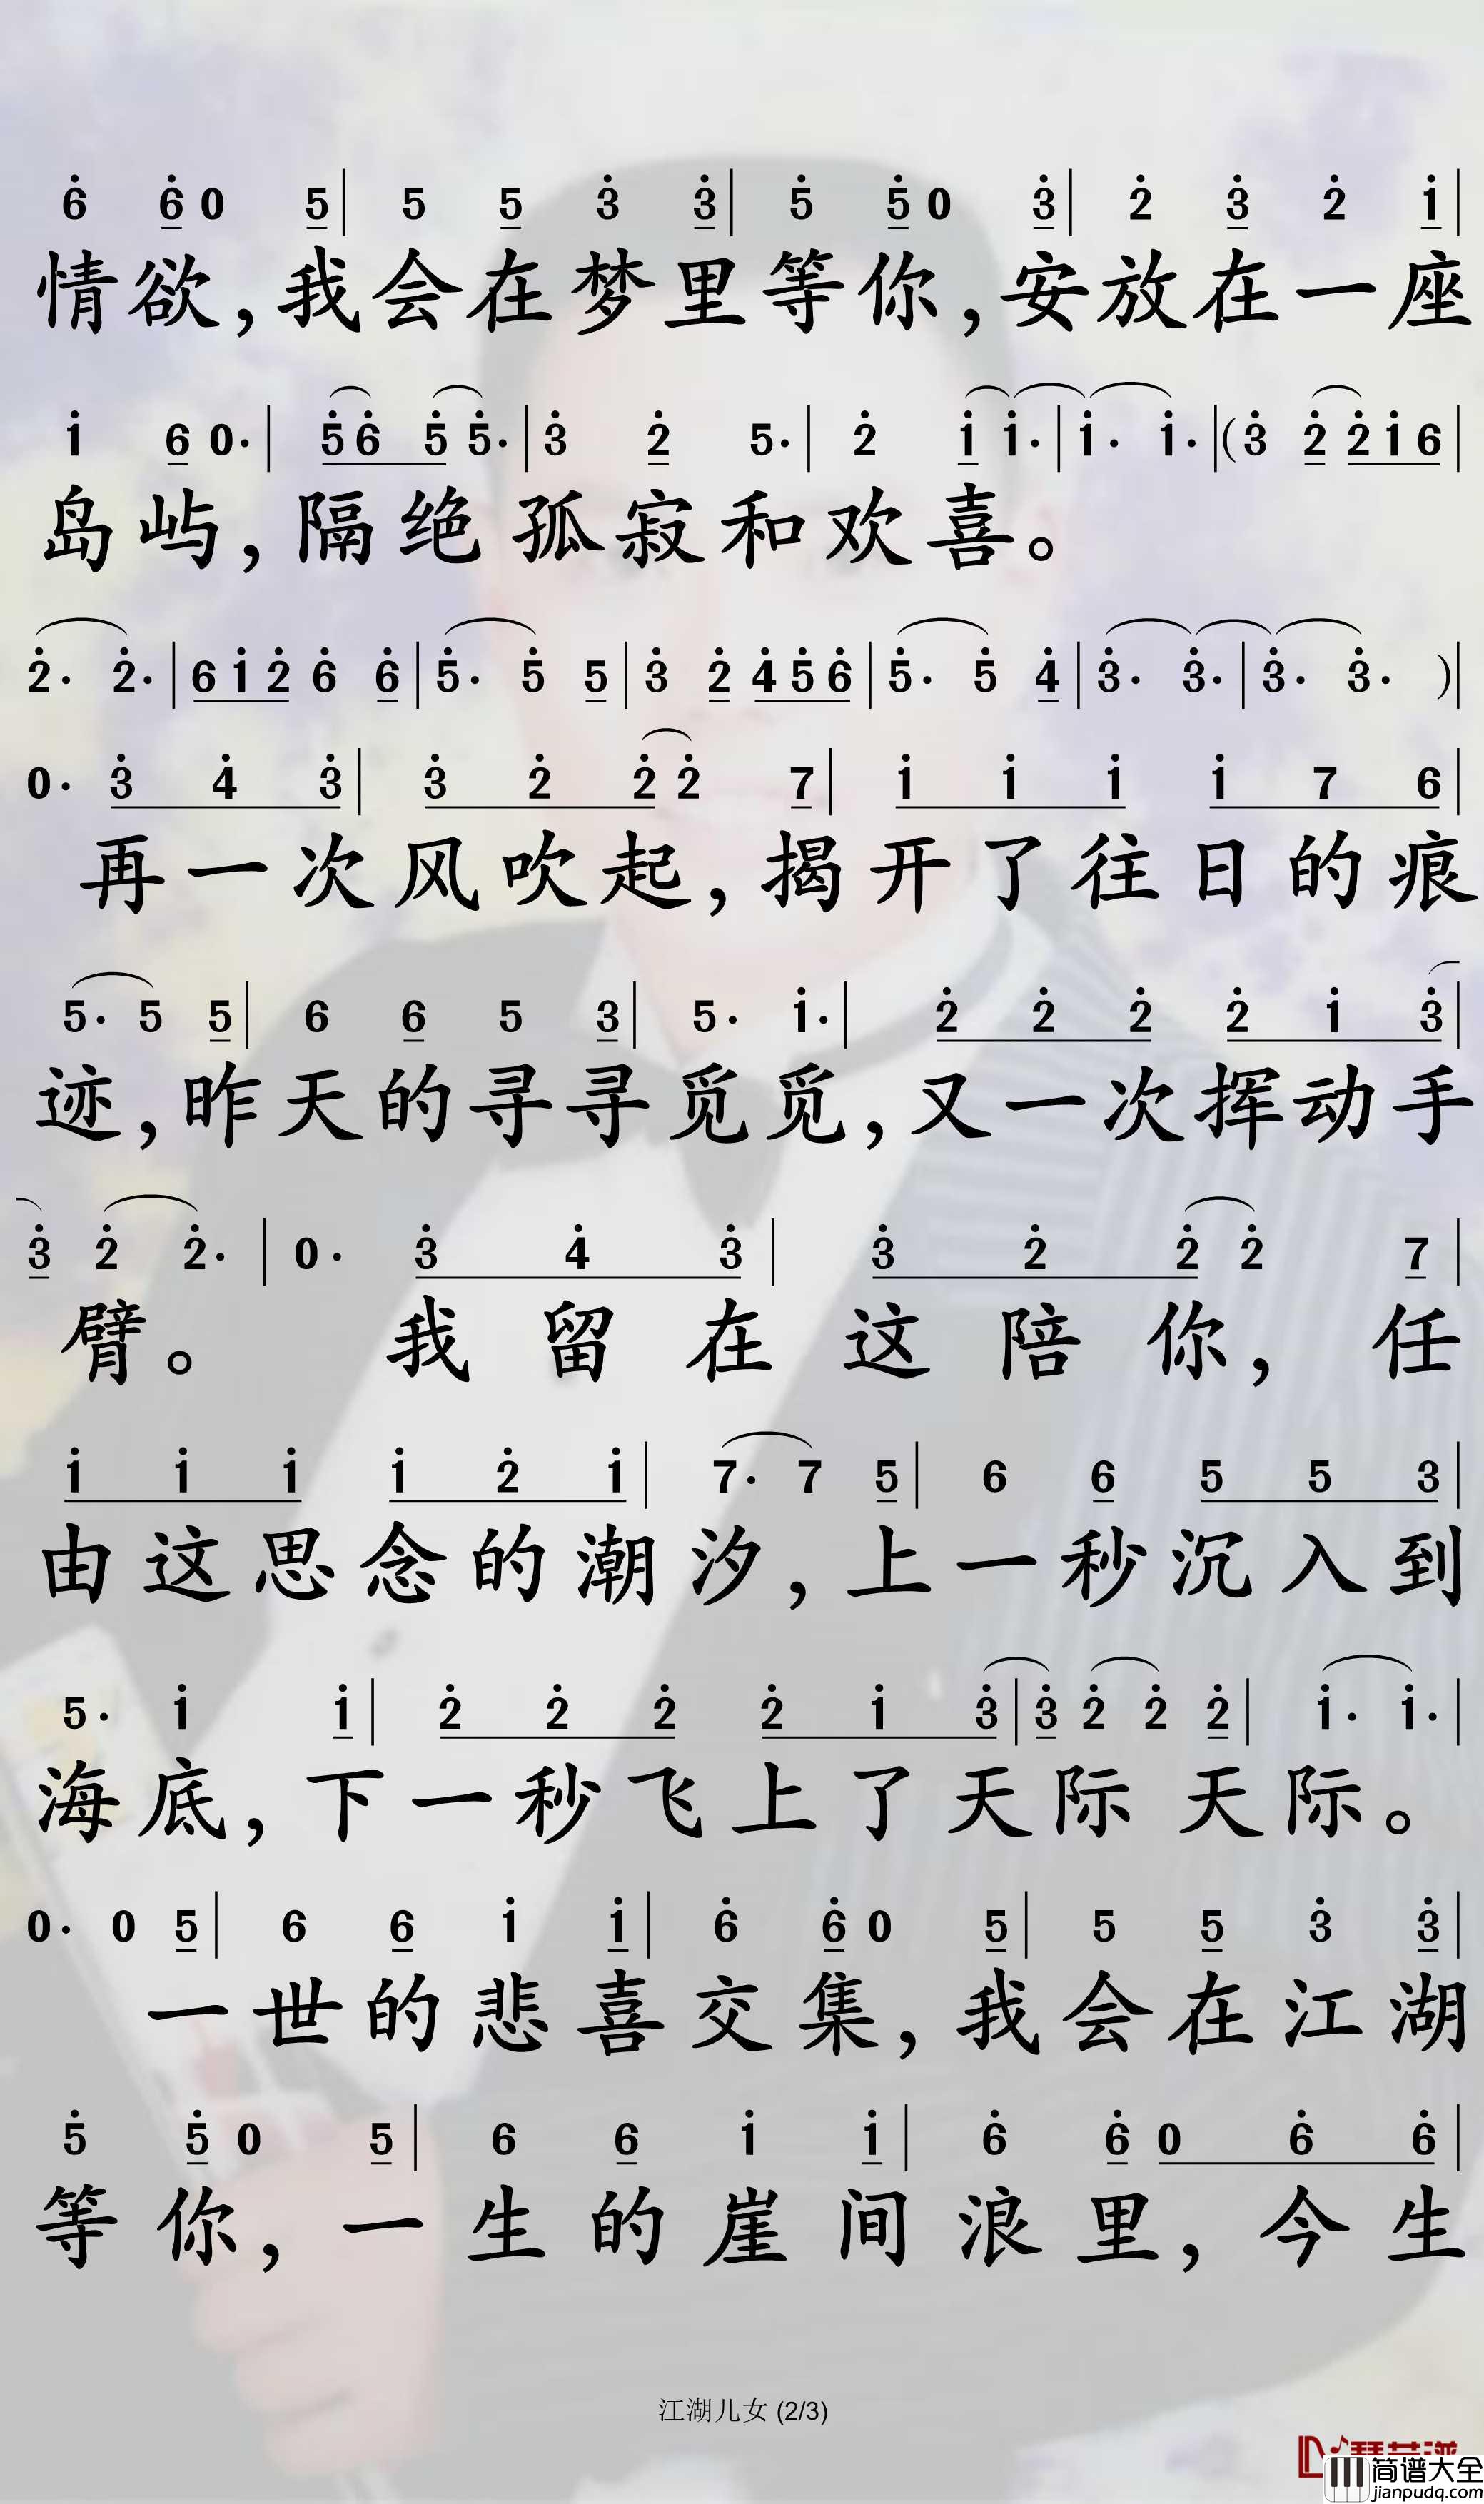 6̇ 6̇ 0 5 | 5 5 3̇ 3̇ | 5̇ 5̇ 0 3̇ | 2̇ 3̇ 2̇ 1̇ |
情欲，我会在梦里等你，安放在一座
1̇ 6 0· | 5̇ 6̇ 5̇ 5̇· | 3̇ 2̇ 5· | 2̇ 1̇ 1̇· | 1̇· 1̇· | (3̇ 2̇ 2̇ 1̇ 6 |
岛屿，隔绝孤寂和欢喜。
2̇· 2̇· | 6 1̇ 2̇ 6̇ 6̇ | 5̇· 5̇ 5 | 3̇ 2̇ 4̇ 5̇ 6̇ | 5̇· 5̇ 4̇ | 3̇· 3̇· | 3̇· 3̇· ) |
0· 3̇ 4̇ 3̇ | 3̇ 2̇ 2̇ 2̇ 7 | 1̇ 1̇ 1̇ 1̇ 7 6 |
再一次风吹起，揭开了往日的痕
5· 5 5 | 6 6 5 3 | 5· 1̇· | 2̇ 2̇ 2̇ 2̇ 1̇ 3̇ |
迹，昨天的寻寻觅觅，又一次挥动手
3̇ 2̇ 2̇· | 0· 3̇ 4̇ 3̇ | 3̇ 2̇ 2̇ 2̇ 7 |
臂。我留在这陪你，任
1̇ 1̇ 1̇ 1̇ 2̇ 1̇ | 7· 7 5 | 6 6 5 5 3 |
由这思念的潮汐，上一秒沉入到
5· 1̇ 1̇ | 2̇ 2̇ 2̇ 2̇ 1̇ 3̇ | 3̇ 2̇ 2̇ 2̇ | 1̇· 1̇· |
海底，下一秒飞上了天际 天际。
0· 0 5 | 6 6 1̇ 1̇ | 6̇ 6̇ 0 5 | 5 5 3̇ 3̇ |
一世的悲喜交集，我会在江湖
5̇ 5̇ 0 5 | 6 6 1̇ 1̇ | 6̇ 6̇ 0 6̇ 6̇ |
等你，一生的崖间浪里，今生
江湖儿女 (2/3)
简谱大全
jianpudq.com